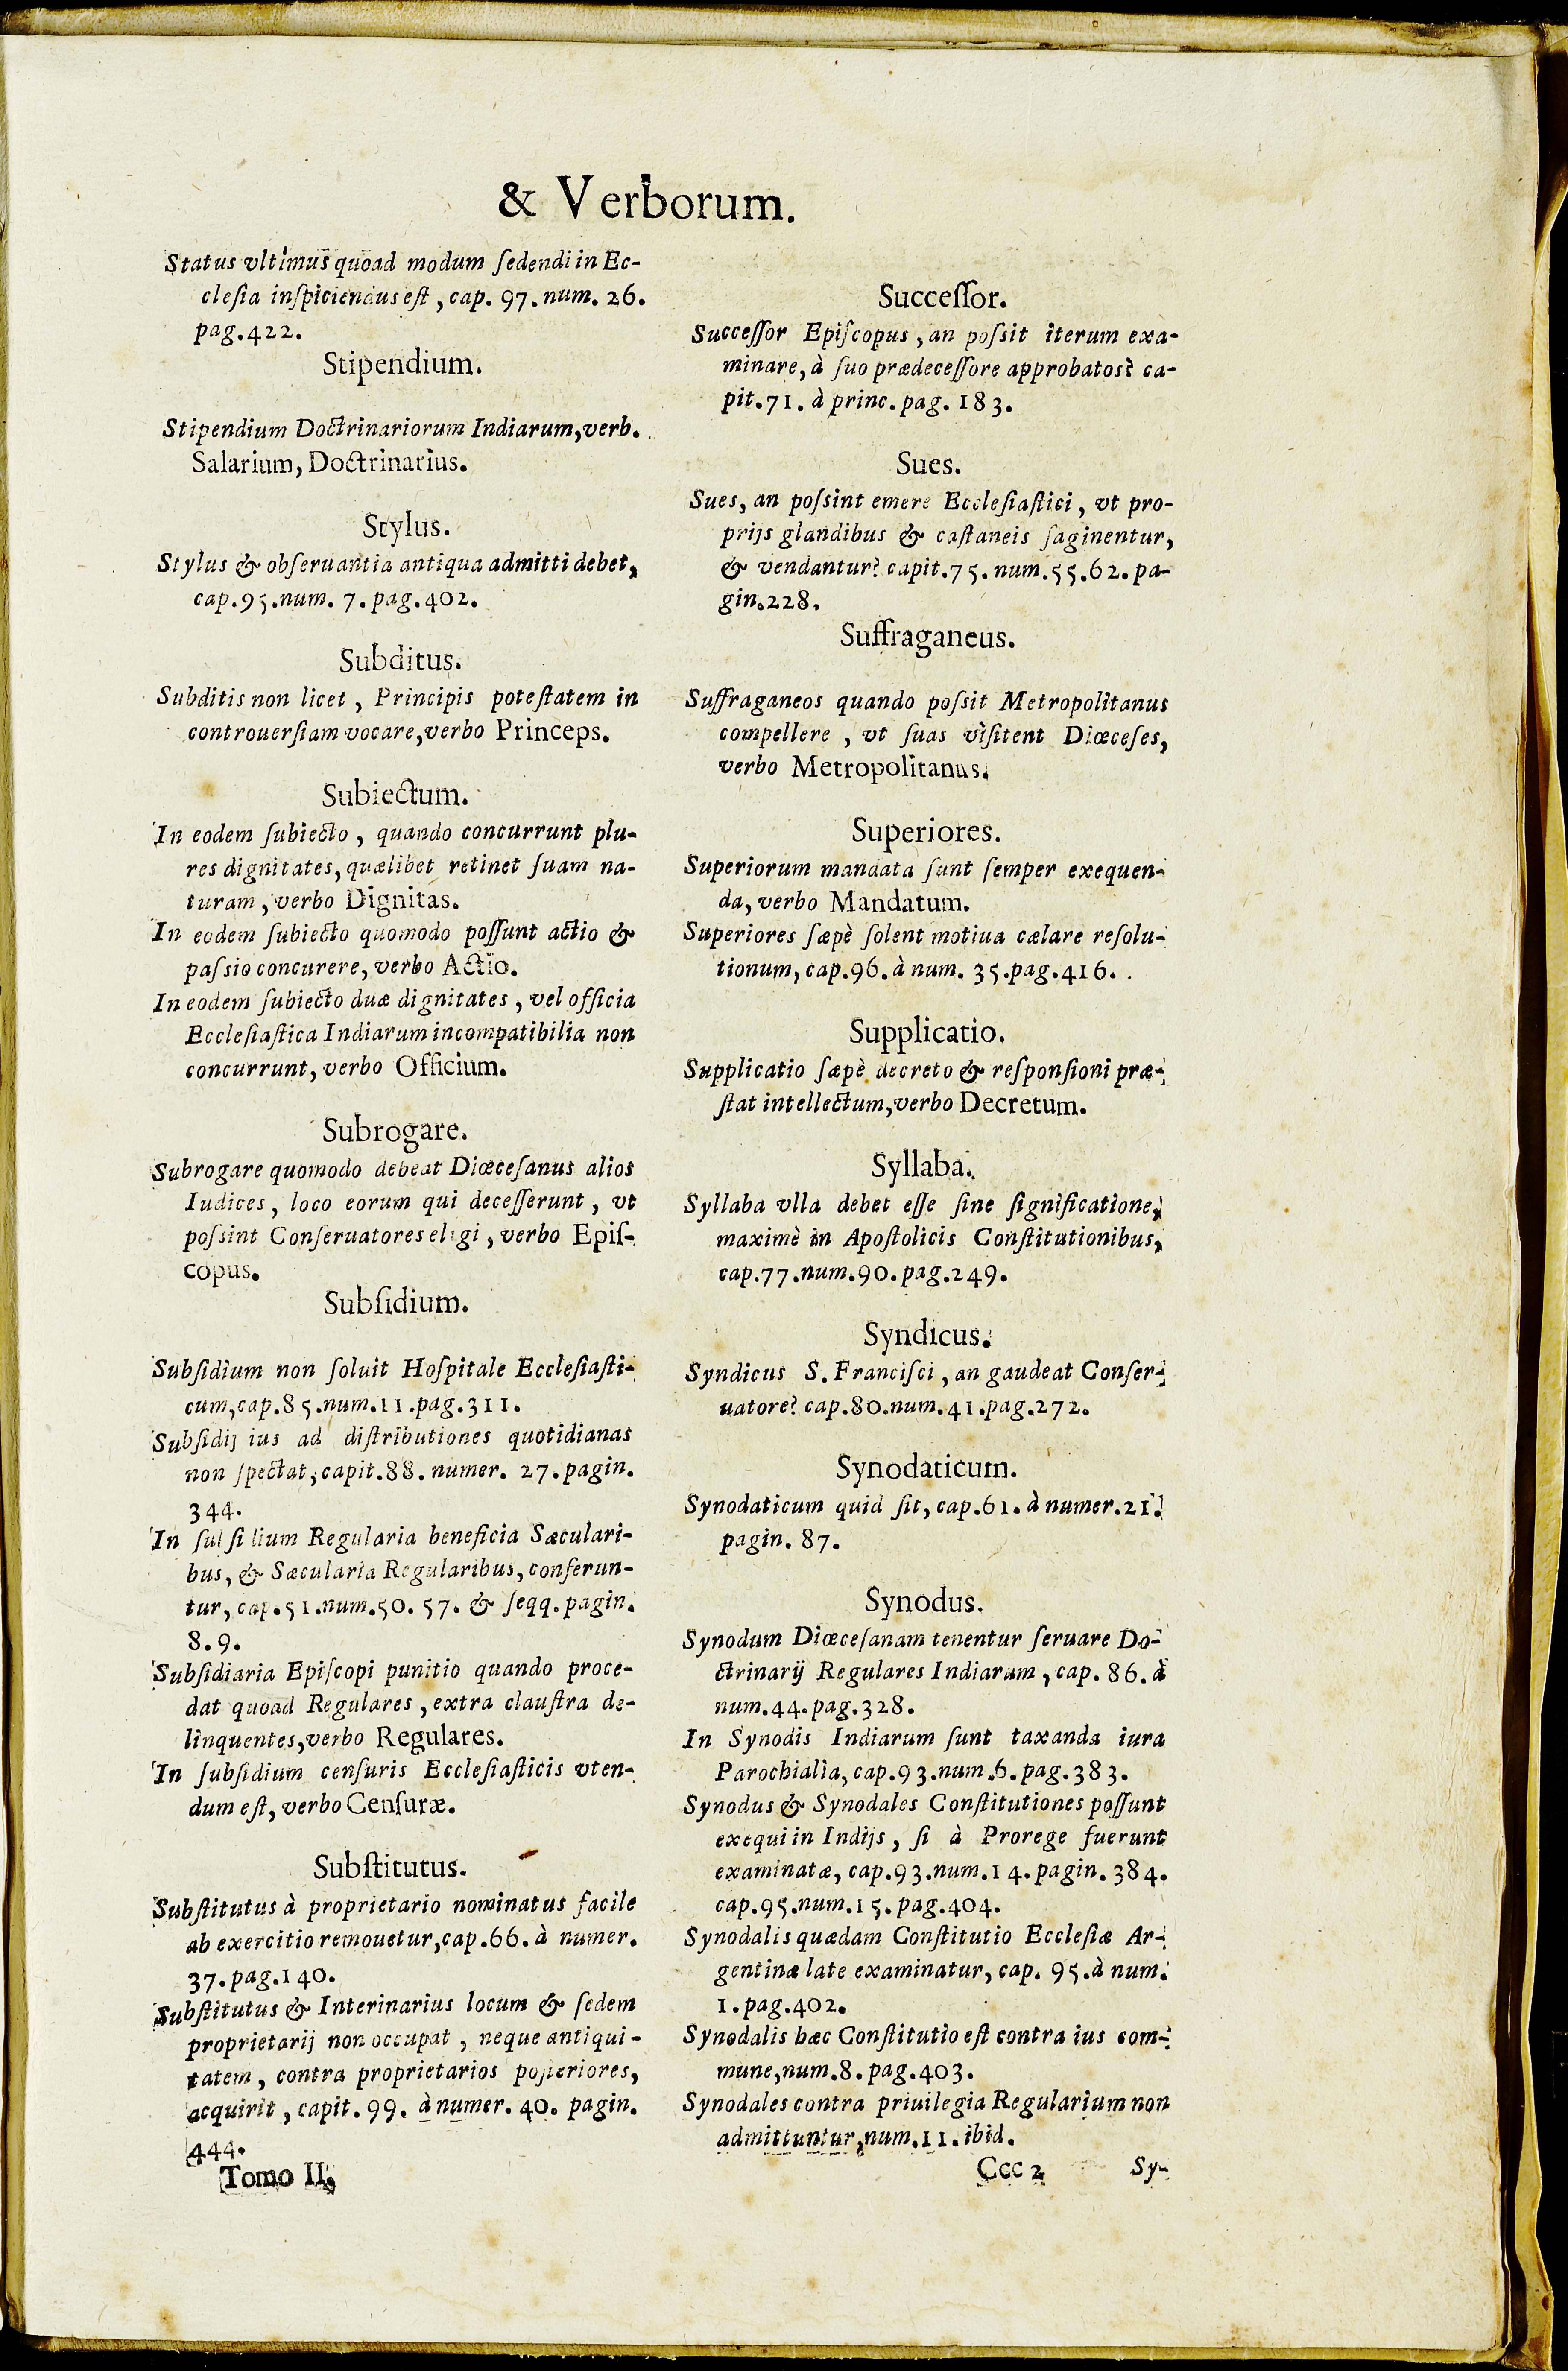 & Verborum.
Status vltimus quoad modum ſedendi in Ec-
cleſia inſpiciendus eſt, cap. 97. num. 26.
pag. 422.
Stipendium.
Stipendium Doctrinariorum Indiarum, verb.
Salarium, Doctrinarius.
Stylus.
Stylus & obſeruantia antiqua admitti debet,
cap. 95. num. 7. pag. 402.
Subditus.
Subditis non licet, Principis poteſtatem in
controuerſiam vocare, verbo Princeps.
Subiectum.
In eodem ſubiecto, quando concurrunt plu-
res dignitates, quælibet retinet ſuam na-
turam, verbo Dignitas.
In eodem ſubiecto quomodo poſſunt actio &
paſsio concurere, verbo Actio.
In eodem ſubiecto duæ dignitates, vel officia
Eccleſiaſtica Indiarum incompatibilia non
concurrunt, verbo Officium.
Subrogare.
Subrogare quomodo debeat Diœceſanus alios
Iudices, loco eorum qui deceſſerunt, vt
poſsint Conſeruatores eligi, verbo Epiſ-
copus.
Subſidium.
Subſidium non ſoluit Hoſpitale Eccleſiaſti-
cum, cap. 85. num. 11. pag. 311.
Subſidij ius ad diſtributiones quotidianas
non ſpectat, capit. 88. numer. 27. pagin.
344.
In ſubſidium Regularia beneficia Sæculari-
bus, & Sæcularia Regularibus, conferun-
tur, cap. 51. num. 50. 57. & ſeqq. pagin.
8. 9.
Subſidiaria Epiſcopi punitio quando proce-
dat quoad Regulares, extra clauſtra de-
linquentes, verbo Regulares.
In ſubſidium cenſuris Eccleſiaſticis vten-
dum eſt, verbo Cenſuræ.
Subſtitutus.
Subſtitutus à proprietario nominatus facile
ab exercitio remouetur, cap. 66. à numer.
37. pag. 140.
Subſtitutus & Interinarius locum & ſedem
proprietarij non occupat, neque antiqui-
tatem, contra proprietarios poſteriores,
acquirit, capit. 99. à numer. 40. pagin.
444.
Tomo II.
Succeſſor.
Succeſſor Epiſcopus, an poſsit iterum exa-
minare, à ſuo prædeceſſore approbatos? ca-
pit. 71. à princ. pag. 183.
Sues.
Sues, an poſsint emere Eccleſiaſtici, vt pro-
prijs glandibus & caſtaneis ſaginentur,
& vendantur? capit. 75. num. 55. 62. pa-
gin. 228.
Suffraganeus.
Suffraganeos quando poſsit Metropolitanus
compellere, vt ſuas viſitent Diœceſes,
verbo Metropolitanus.
Superiores.
Superiorum mandata ſunt ſemper exequen-
da, verbo Mandatum.
Superiores ſæpè ſolent motiua cælare reſolu-
tionum, cap. 96. à num. 35. pag. 416.
Supplicatio.
Supplicatio ſæpè decreto & reſponſioni præ-
ſtat intellectum, verbo Decretum.
Syllaba.
Syllaba vlla debet eſſe ſine ſignificatione,
maximè in Apoſtolicis Conſtitutionibus,
cap. 77. num. 90. pag. 249.
Syndicus.
Syndicus S. Franciſci, an gaudeat Conſer-
uatore? cap. 80. num. 41. pag. 272.
Synodaticum.
Synodaticum quid ſit, cap. 61. à numer. 21.
pagin. 87.
Synodus.
Synodum Diœceſanam tenentur ſeruare Do-
ctrinarij Regulares Indiarum, cap. 86. à
num. 44. pag. 328.
In Synodis Indiarum ſunt taxanda iura
Parochialia, cap. 93. num. 6. pag. 383.
Synodus & Synodales Conſtitutiones poſſunt
exequi in Indijs, ſi à Prorege fuerunt
examinatæ, cap. 93. num. 14. pagin. 384.
cap. 95. num. 15. pag. 404.
Synodalis quædam Conſtitutio Eccleſiæ Ar-
gentinæ late examinatur, cap. 95. à num.
1. pag. 402.
Synodalis hæc Conſtitutio eſt contra ius com-
mune, num. 8. pag. 403.
Synodales contra priuilegia Regularium non
admittuntur, num. 11. ibid.
Ccc 2 Sy-